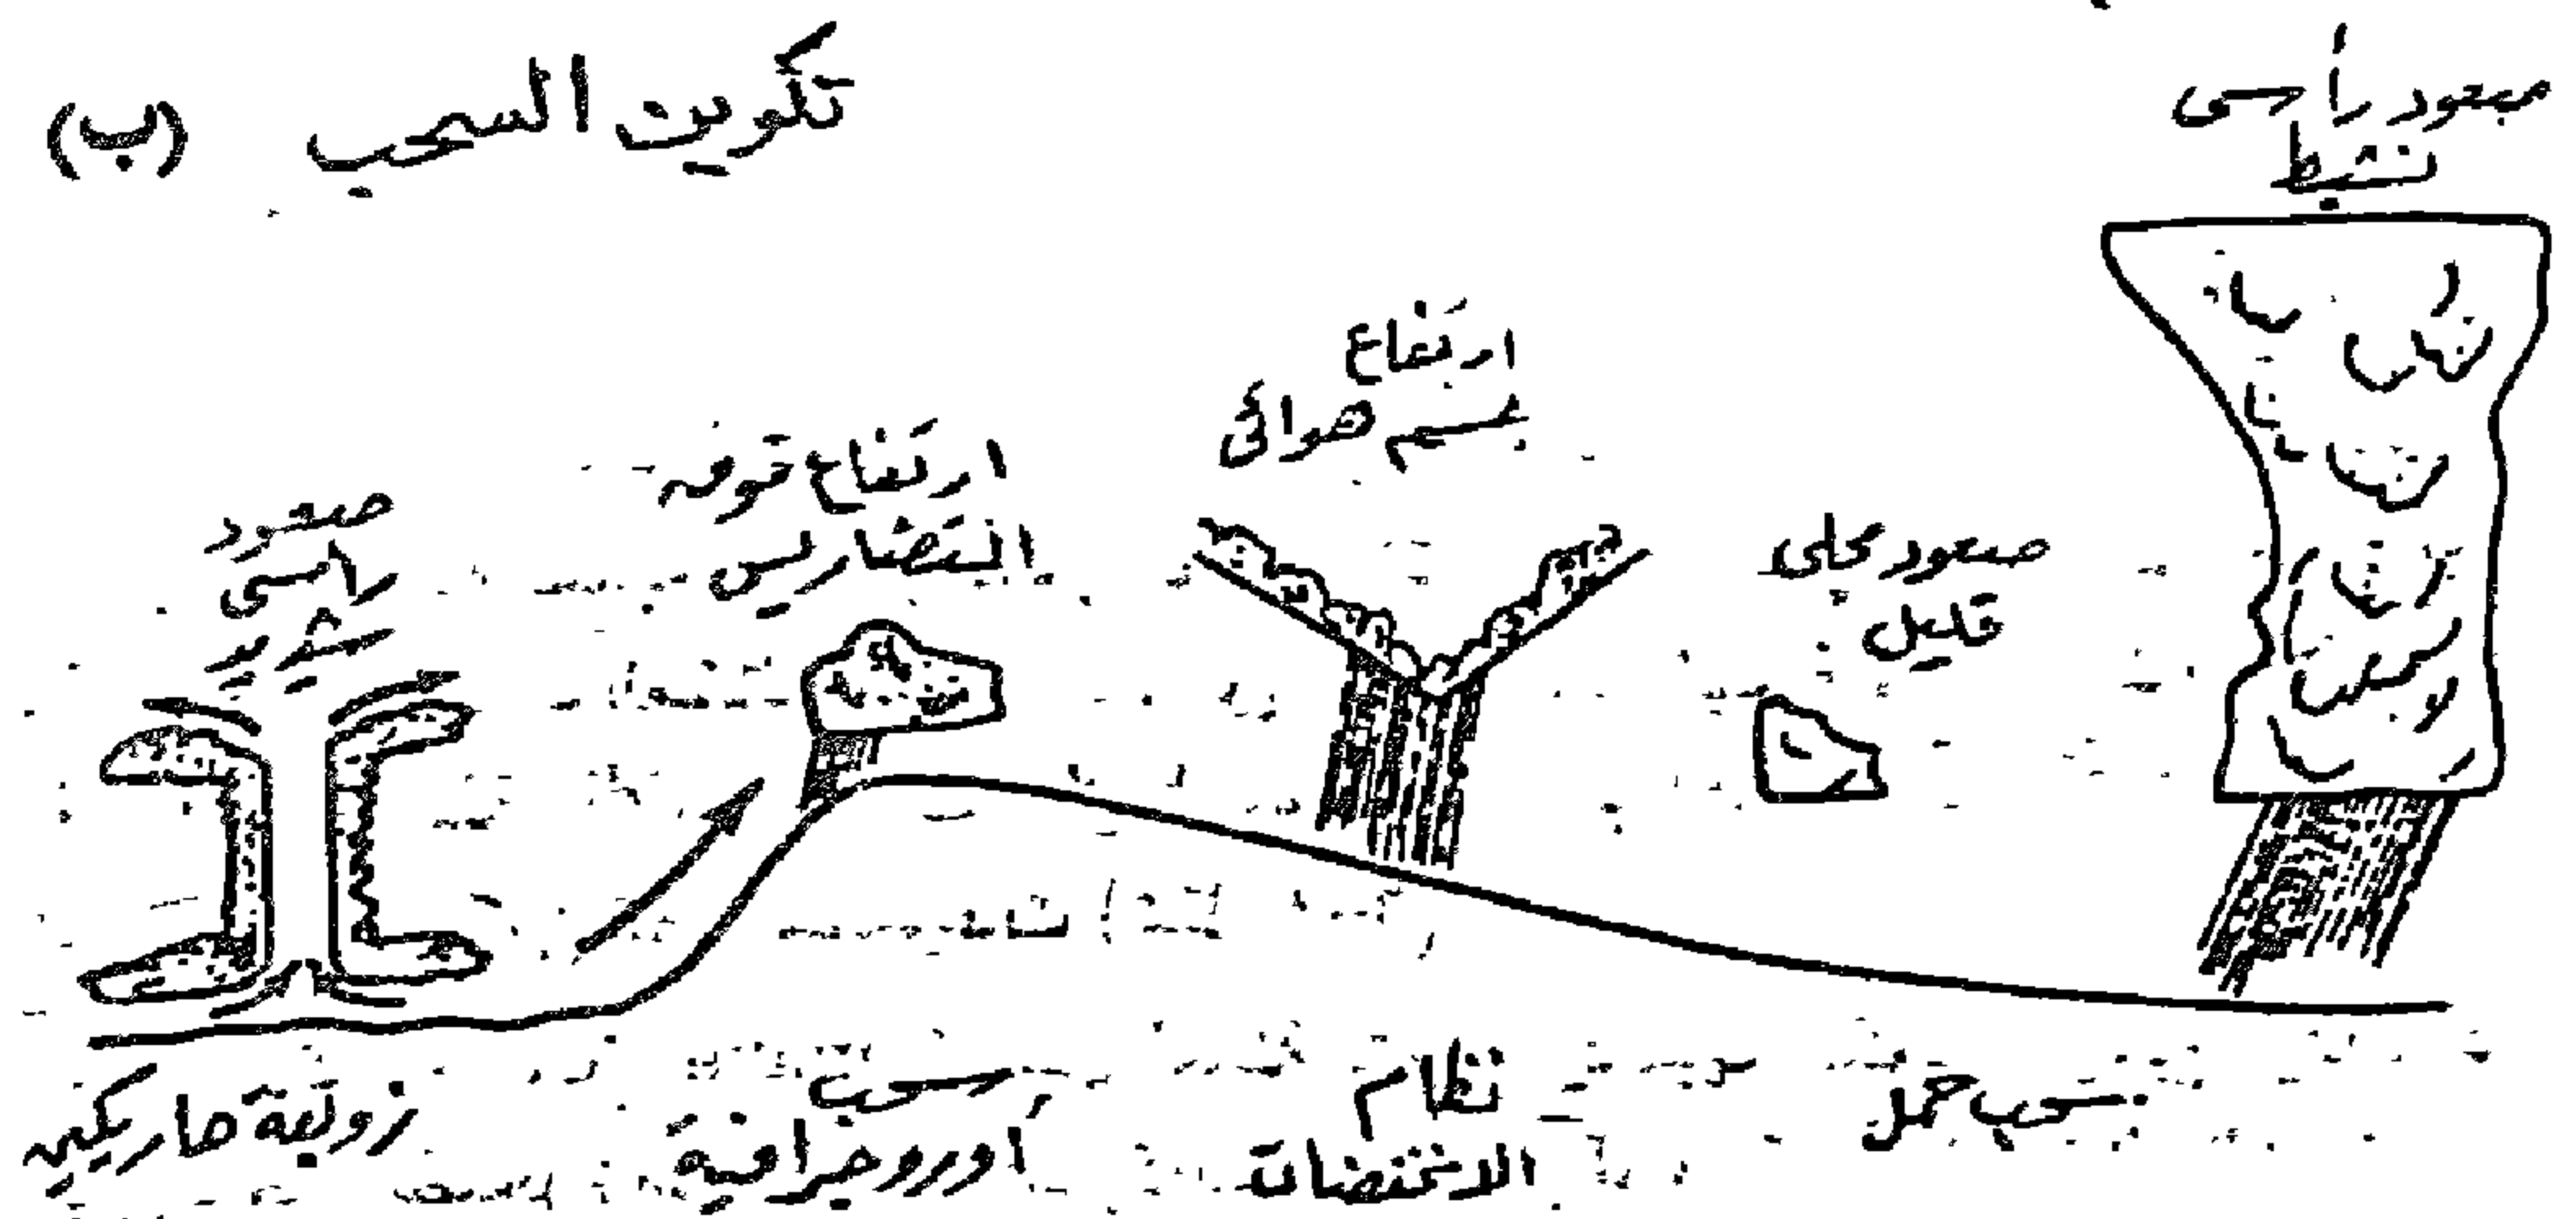 تكوين السحب (ب)
صعود رأسى
نشط
ارتفاع
جسم هوائى
ارتفاع فوق
التضاريس
صعود
رأسى
شديد
صعود محلى
قليل
سحب حمل
نظام
الانخفضات
سحب
أوروجرافية
زوبعة هاريكين